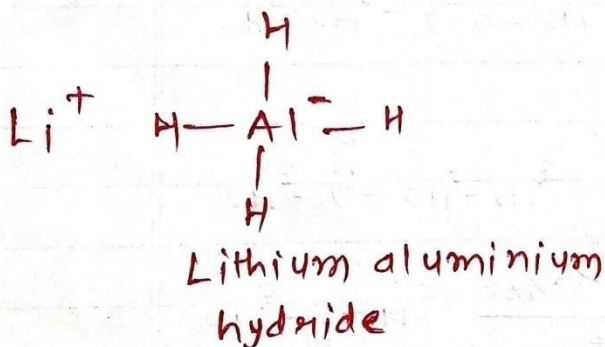 H
Li⁺ H—Al⁻—H
H
Lithium aluminium
hydride